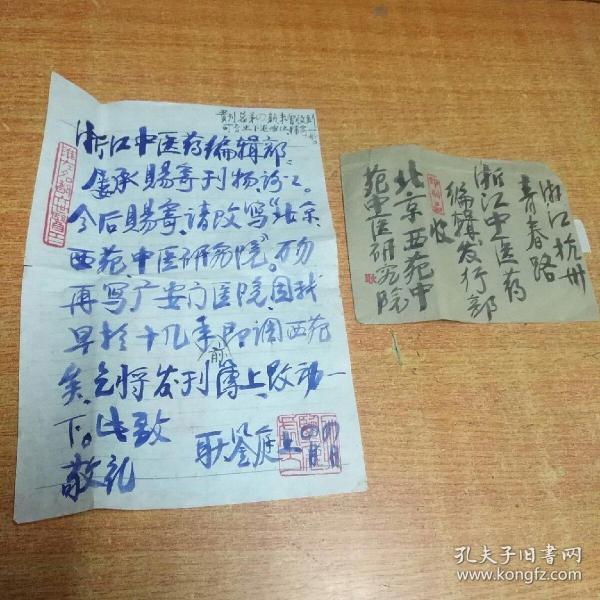 浙江中医药编辑部：
屡承賜寄刊物，谢谢。
今后賜寄，请改写“北京
西苑，中医研究院”。万勿
再写广安门医院，因我
早於十几年前即调西苑
矣，乞将发刊簿上改动一
下。此致
敬礼
耿鉴庭上
浙江杭州
青春路
浙江中医药
编辑、发行部
收
北京西苑中
苑中医研究院
耿
孔夫子旧书网
www.kongfz.com